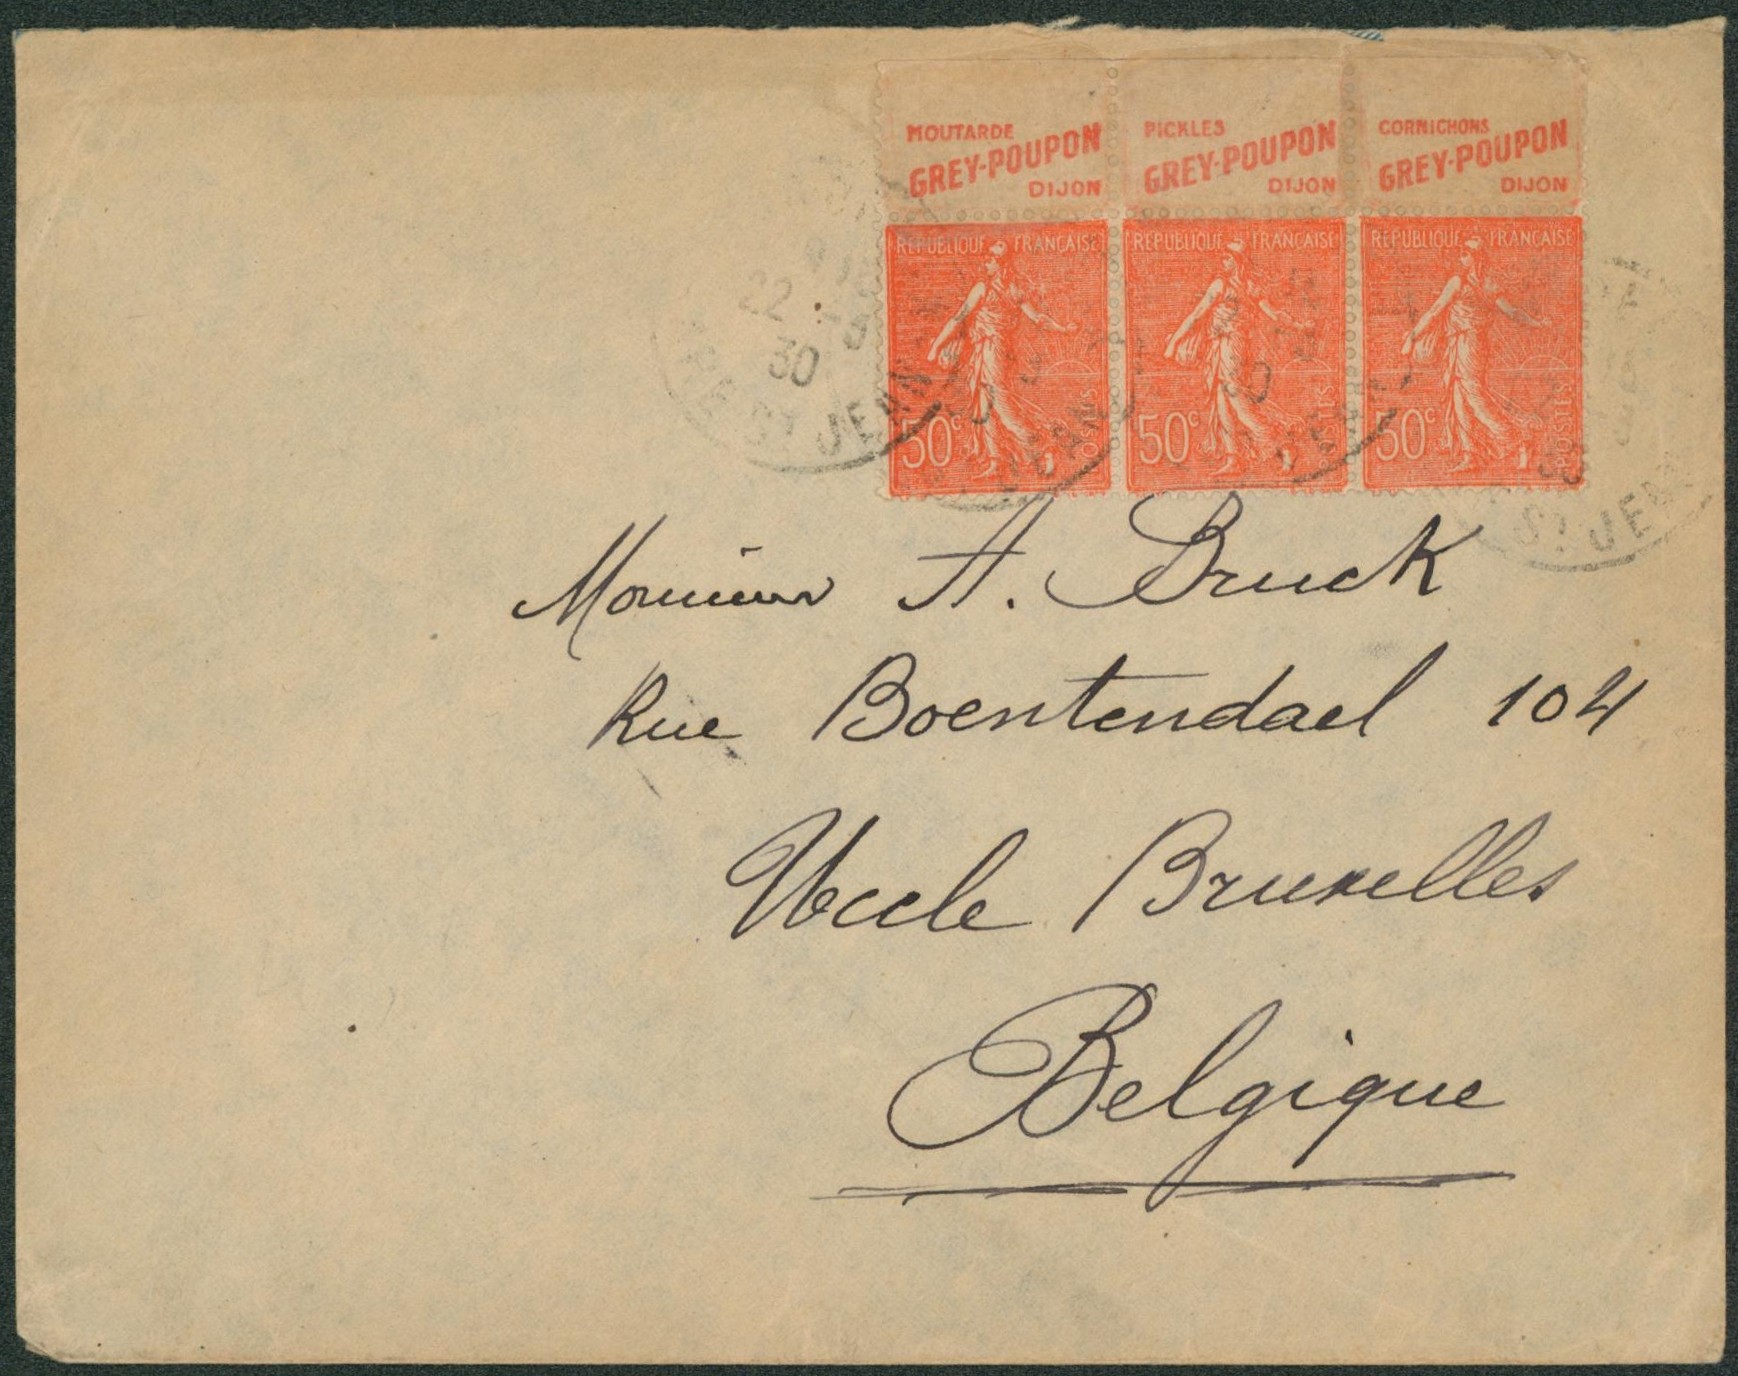 MOUTARDE
GREY-POUPON
DIJON
PICKLES
GREY-POUPON
DIJON
CORNICHONS
GREY-POUPON
DIJON
REPUBLIQUE FRANÇAISE
50c
POSTES
REPUBLIQUE FRANÇAISE
50c
POSTES
REPUBLIQUE FRANÇAISE
50c
POSTES
22
30
ST JEAN
ST JEAN
Monsieur A. Bruck
Rue Boentendael 104
Uccle Bruxelles
Belgique